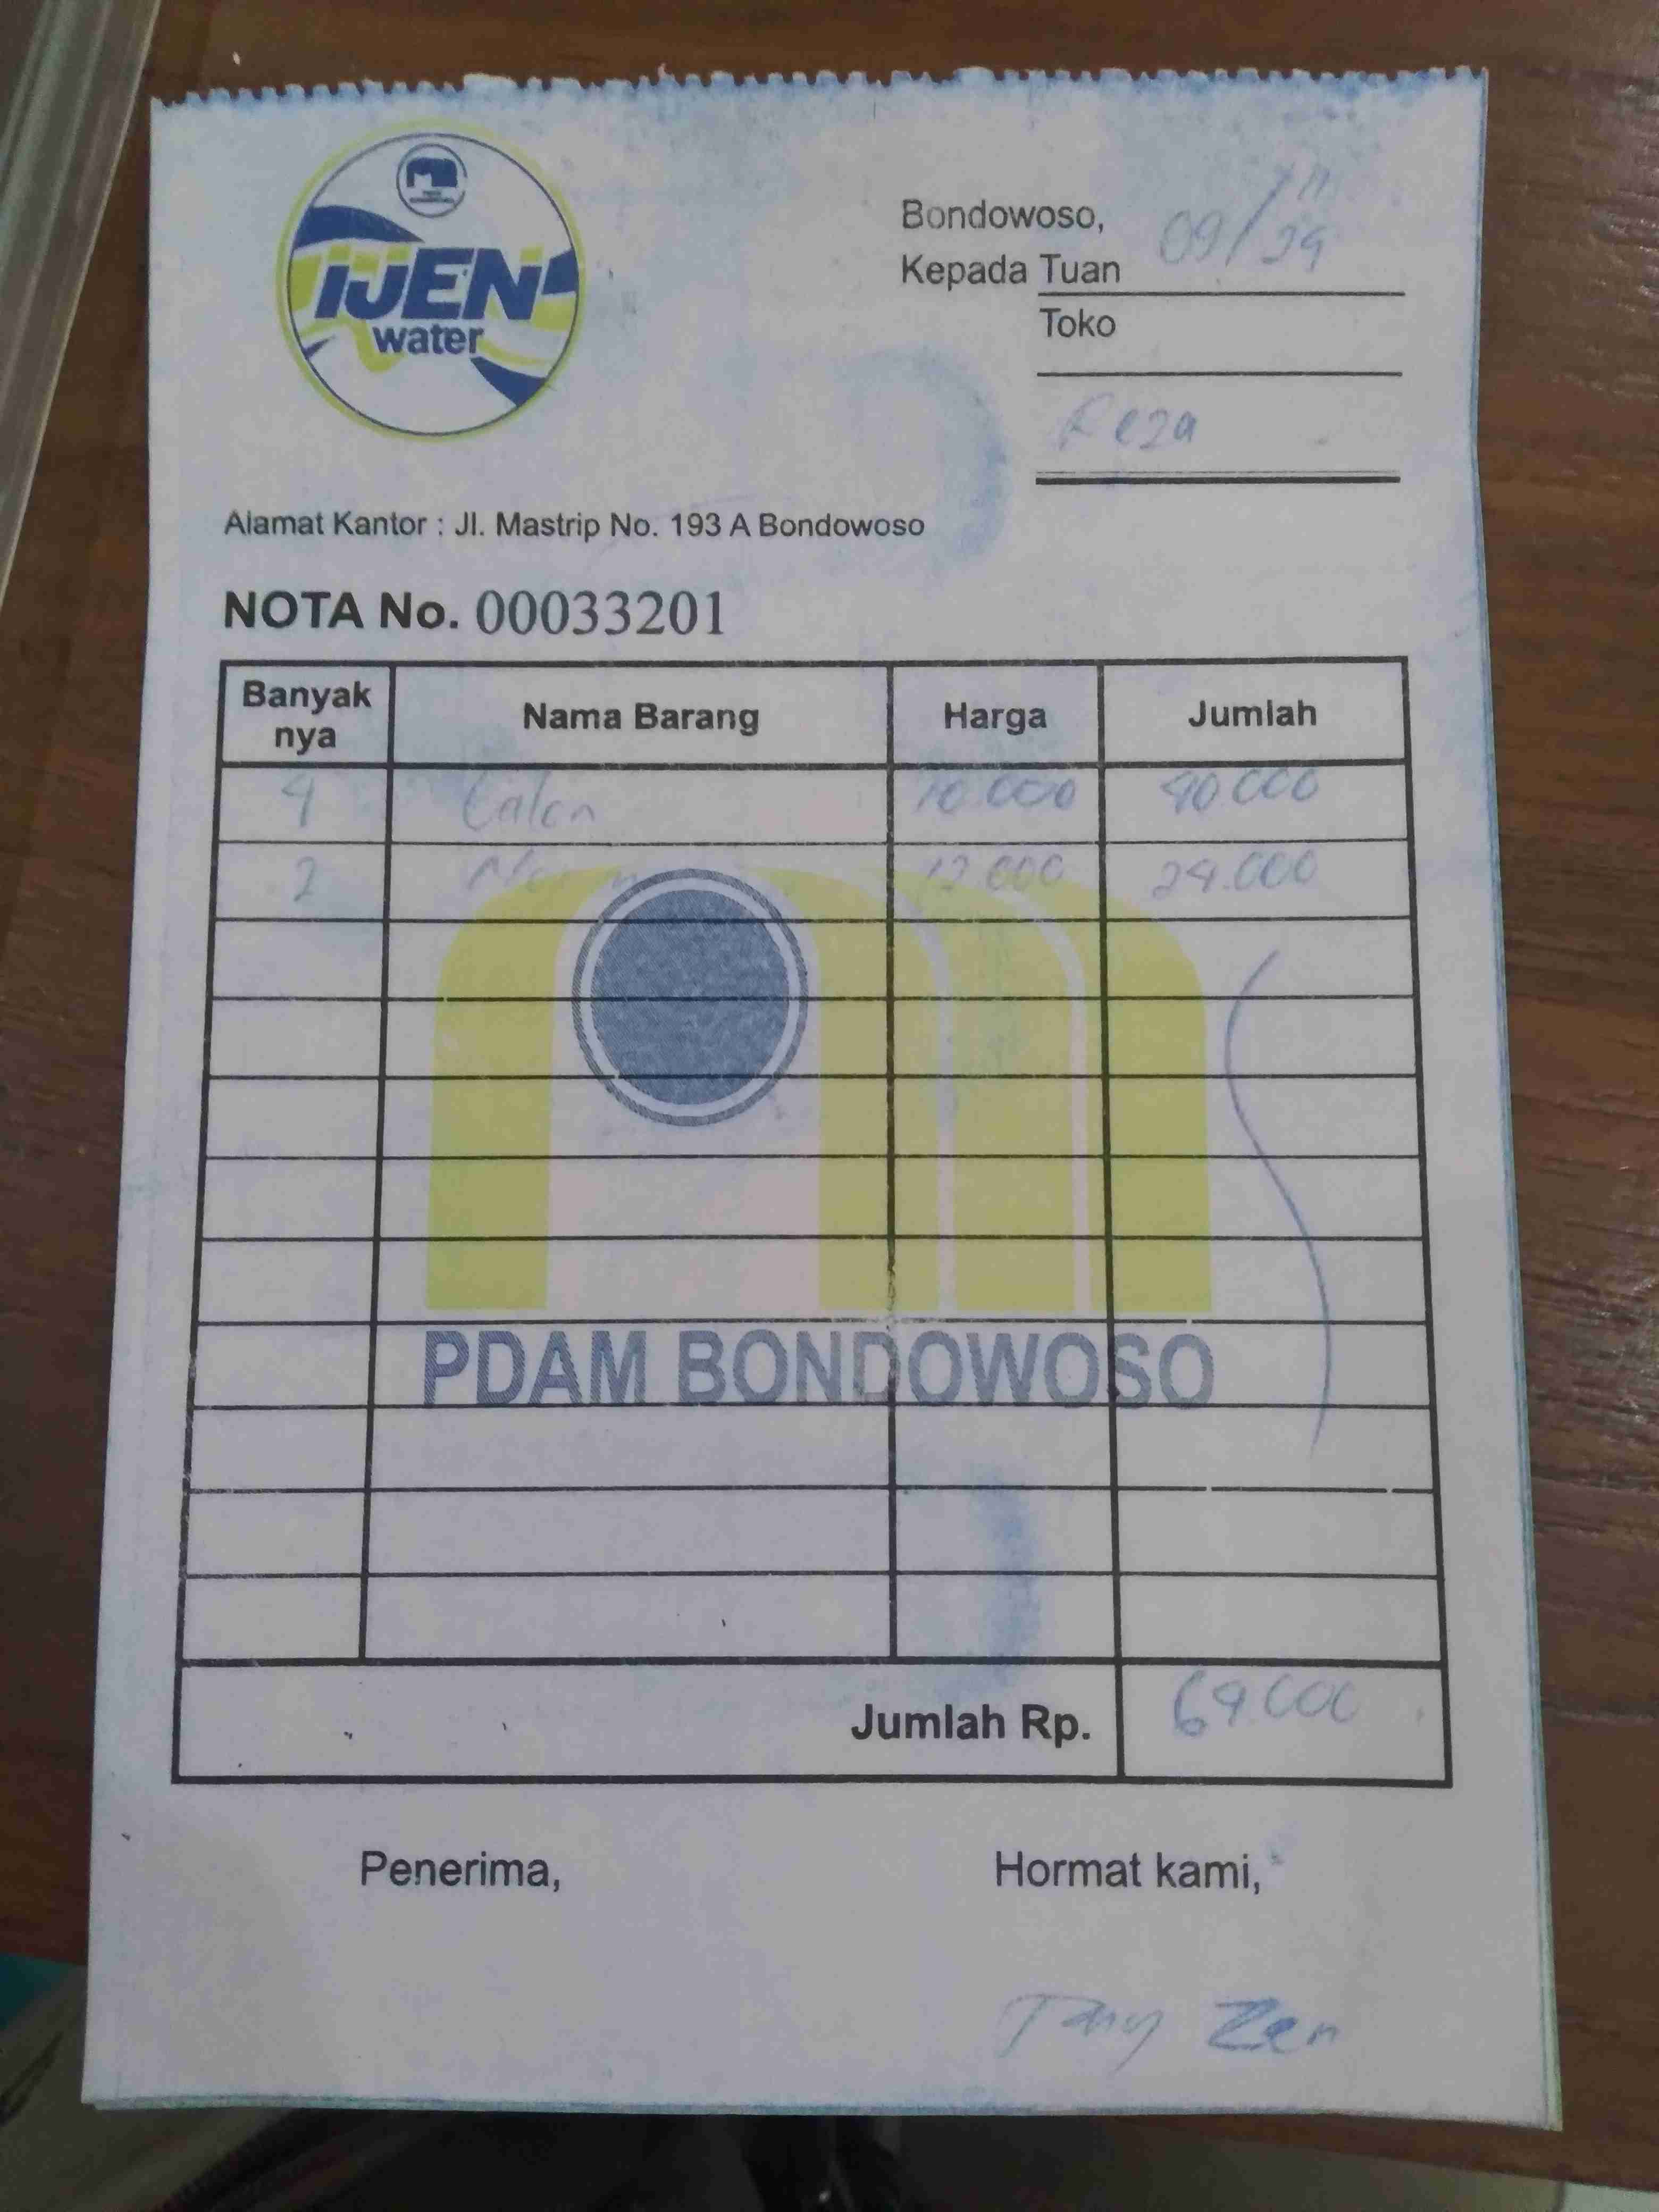 IJEN
water
Bondowoso, 09/11
Kepada Tuan
Toko
Reza
Alamat Kantor : Jl. Mastrip No. 193 A Bondowoso
NOTA No. 00033201
Banyak nya Nama Barang Harga Jumlah
4 Galon 10.000 40.000
2 12.000 24.000
PDAM BONDOWOSO
Jumlah Rp. 64.000
Penerima, Hormat kami,
Zen